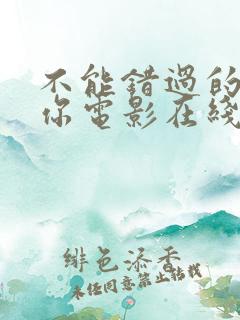 不能錯過的
你電影在綫
緋色添香
未经同意禁止转载